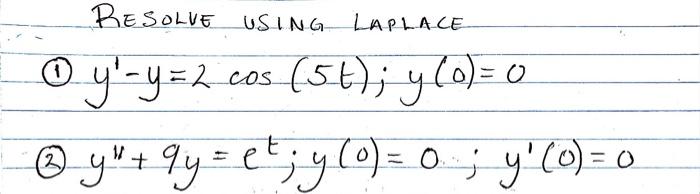 RESOLVE USING LAPLACE
① y' - y = 2 cos (5t); y(0) = 0
② y'' + 9y = e^t; y(0) = 0 ; y'(0) = 0